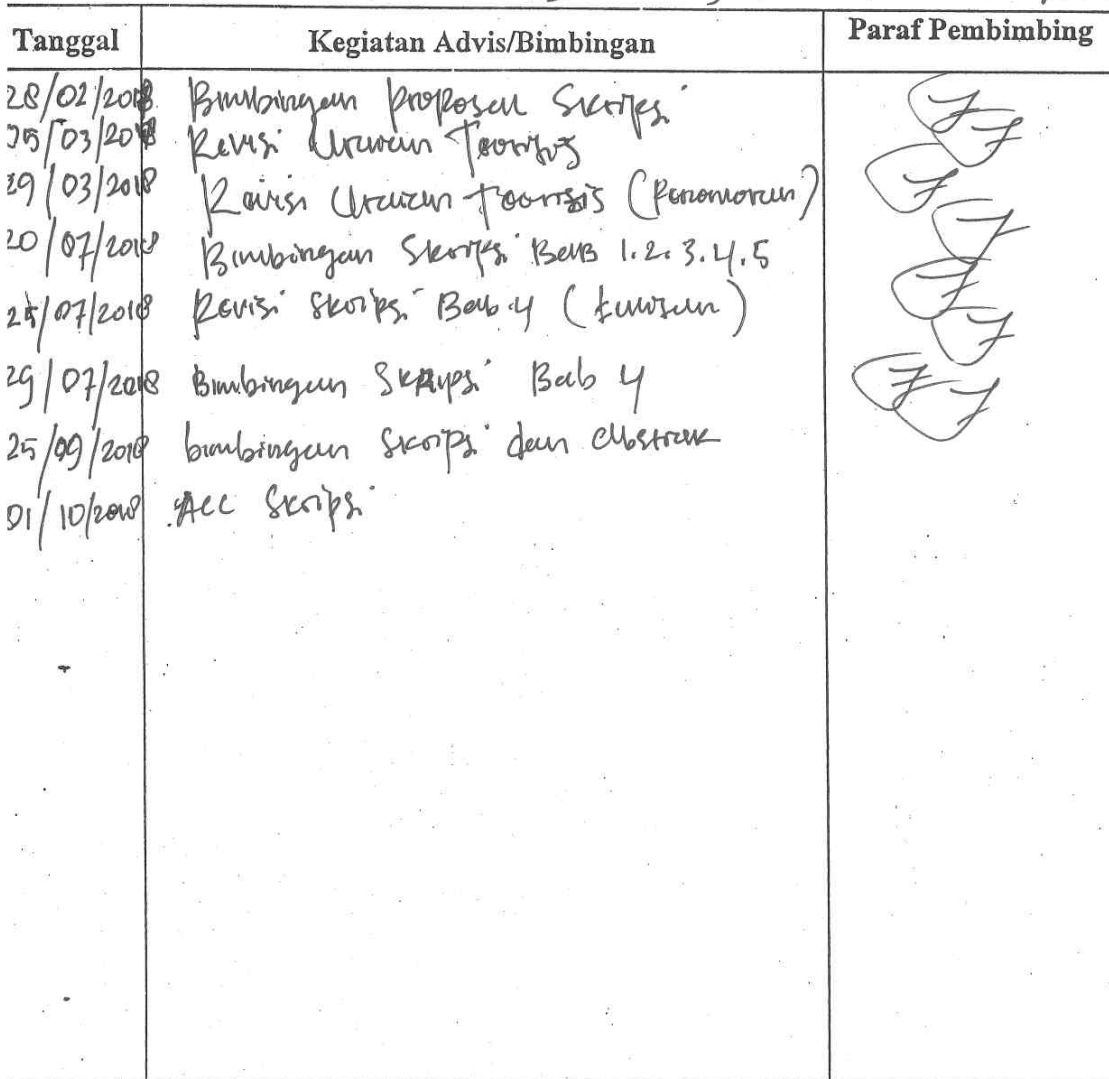 Tanggal Kegiatan Advis/Bimbingan Paraf Pembimbing
28/02/2018 Bimbingan proposal Skripsi
05/03/2018 Revisi Uraian Teoritis
29/03/2018 Revisi Uraian Teoritis (Penomoran)
20/07/2018 Bimbingan Skripsi Bab 1.2.3.4.5
25/07/2018 Revisi Skripsi Bab 4 (tulisan)
29/07/2018 Bimbingan Skripsi Bab 4
25/09/2018 bimbingan Skripsi dan Abstrak
01/10/2018 Acc Skripsi